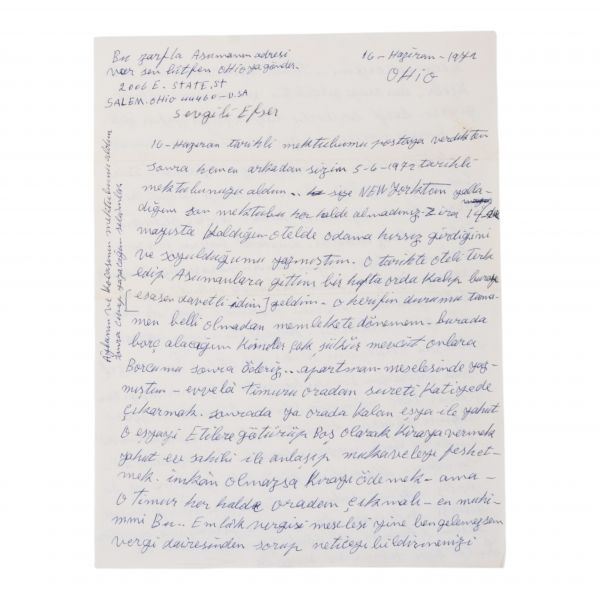 Bu zarfla Asumanın adresi
var sen lütfen OHiO ya gönder.
2006 E. STATE. St
SALEM. OHiO 44460 - U.SA
16 - Haziran - 1972
OHiO
Sevgili Efser
16 - Haziran tarihli mektubumu postaya verdikten
sonra hemen arkadan sizin 5-6-1972 tarihli
mektubunuzu aldım.. size NEW Yorktan yolla-
dığım son mektubu her halde almadınız - Zira 14
mayısta Kaldığım otelde odama hırsız girdiğini
ve soyulduğumu yazmıştım. O tarihte oteli terk
edip Asumanlara gittim bir hafta orda Kalıp buraya
[esasen davetli idim] geldim. - O herifin durumu tama-
men belli olmadan memlekete dönemem - burada
borç alacağım Kimseler çok şükür mevcut onlara
Borcumu sonra öderiz.. apartman meselesinde yaz-
mıştım - evvelâ Timuru oradan sureti Katiyede
çıkarmak. sonrada ya orada Kalan eşya ile yahut
O eşyayı Etilere götürüp Boş olarak Kiraya vermek
yahut ev sahibi ile anlaşıp mukaveleyi feshet-
mek. imkân olmazsa Kirayı ödemek - ama -
O Timur her halde oradan çıkmalı - en muhi-
mmi Bu.. Emlâk vergisi meselesi yine ben gelemezsem
vergi dairesinden sorup neticeyi bildirmenizi
Aytanın ve Kocasının mektubunu aldım
sonra cevap yazacağım selâmlar